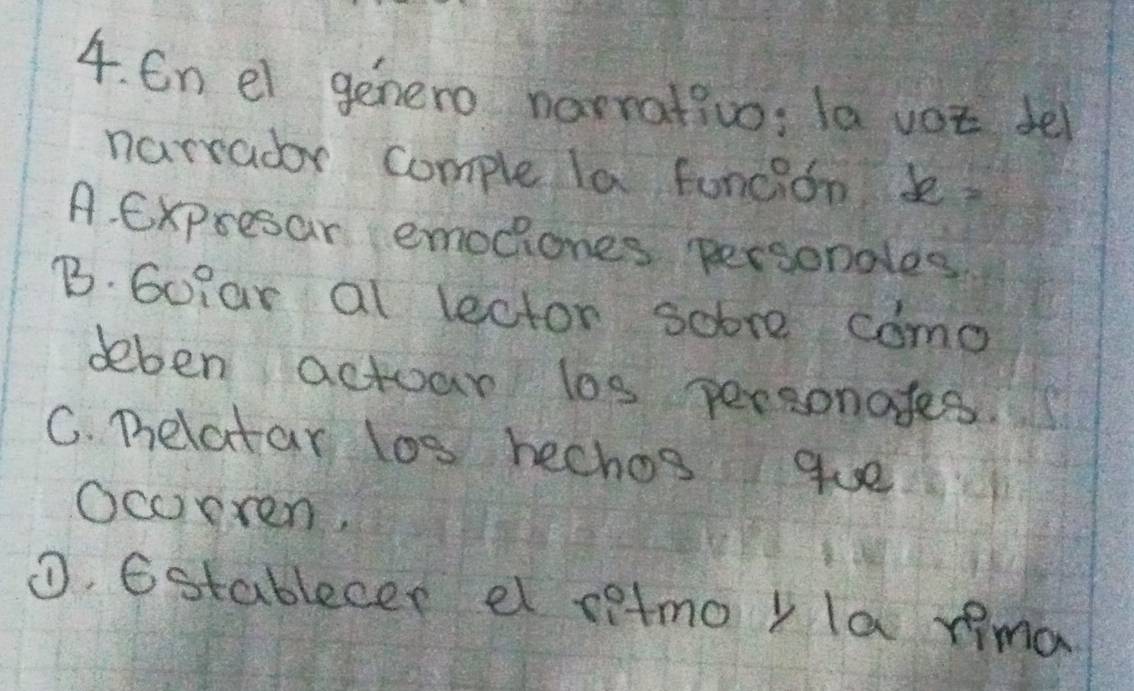 4. En el género narrativo; la voz del
narrador comple la función de =
A. Expresar emociones personales.
B. Guiar al lector sobre cómo
deben actuar los personajes.
C. Relatar los hechos que
Ocurren.
D. Establecer el ritmo y la rima